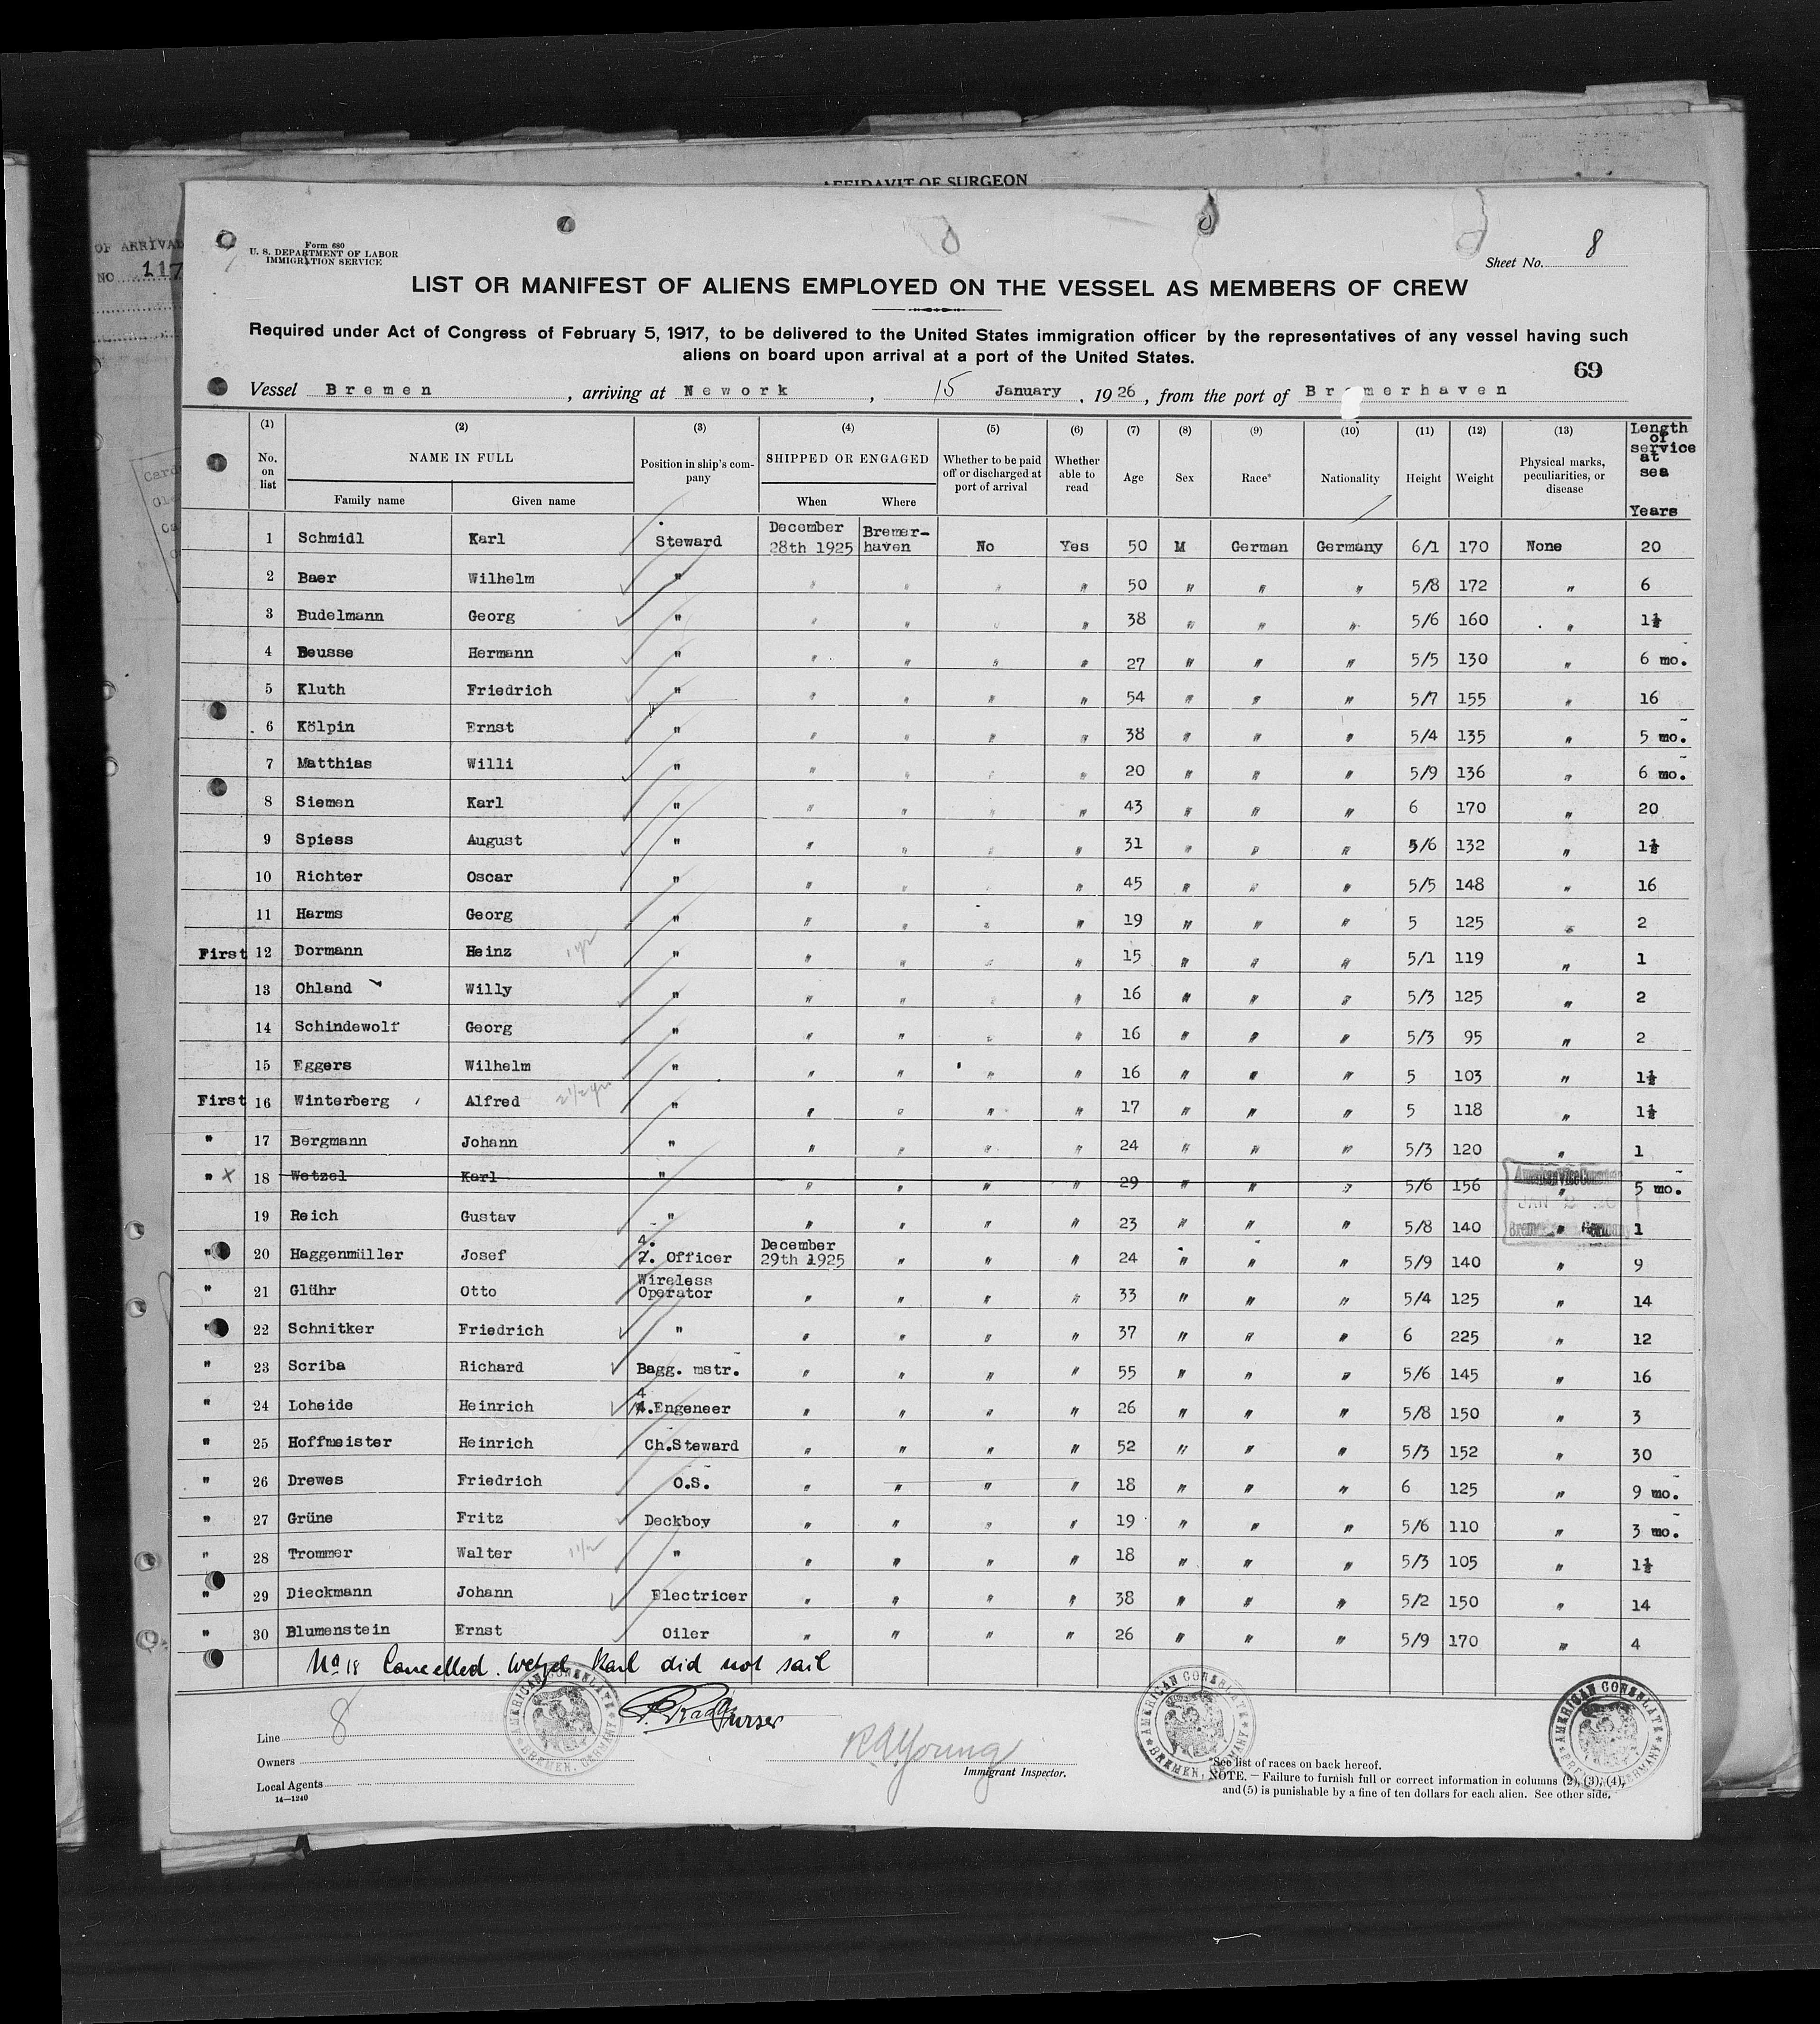 AFFIDAVIT OF SURGEON
OF ARRIVAL
NO 117
Form 680
U. S. DEPARTMENT OF LABOR
IMMIGRATION SERVICE
Sheet No. 8
LIST OR MANIFEST OF ALIENS EMPLOYED ON THE VESSEL AS MEMBERS OF CREW
Required under Act of Congress of February 5, 1917, to be delivered to the United States immigration officer by the representatives of any vessel having such
aliens on board upon arrival at a port of the United States.
69
Vessel Bremen , arriving at Newyork , 15 January , 1926 , from the port of Bremerhaven
(1) (2) (3) (4) (5) (6) (7) (8) (9) (10) (11) (12) (13) Length of service at sea Years
No. on list NAME IN FULL Position in ship's company SHIPPED OR ENGAGED Whether to be paid off or discharged at port of arrival Whether able to read Age Sex Race* Nationality Height Weight Physical marks, peculiarities, or disease
Family name Given name When Where
1 Schmidl Karl Steward December 28th 1925 Bremer-haven No Yes 50 M German Germany 6/1 170 None 20
2 Baer Wilhelm " " " " " 50 " " " 5/8 172 " 6
3 Budelmann Georg " " " " " 38 " " " 5/6 160 " 1½
4 Beusse Hermann " " " " " 27 " " " 5/5 130 " 6 mo.
5 Kluth Friedrich " " " " " 54 " " " 5/7 155 " 16
6 Kölpin Ernst " " " " " 38 " " " 5/4 135 " 5 mo.
7 Matthias Willi " " " " " 20 " " " 5/9 136 " 6 mo.
8 Siemen Karl " " " " " 43 " " " 6 170 " 20
9 Spiess August " " " " " 31 " " " 5/6 132 " 1½
10 Richter Oscar " " " " " 45 " " " 5/5 148 " 16
11 Harms Georg " " " " " 19 " " " 5 125 " 2
First 12 Dormann Heinz 1 yr " " " " " 15 " " " 5/1 119 " 1
13 Ohland Willy " " " " " 16 " " " 5/3 125 " 2
14 Schindewolf Georg " " " " " 16 " " " 5/3 95 " 2
15 Eggers Wilhelm " " " " " 16 " " " 5 103 " 1½
First 16 Winterberg Alfred 2 1/2 yr " " " " " 17 " " " 5 118 " 1½
" 17 Bergmann Johann " " " " " 24 " " " 5/3 120 " 1
" X 18 Wetzel Karl " " " " " 29 " " " 5/6 156 " 5 mo.
19 Reich Gustav " " " " " 23 " " " 5/8 140 " 1
American Vice Consulate
JAN 2 26
Bremen Germany
" 20 Haggenmüller Josef 4. Officer December 29th 1925 " " " 24 " " " 5/9 140 " 9
" 21 Glühr Otto Wireless Operator " " " " 33 " " " 5/4 125 " 14
" 22 Schnitker Friedrich " " " " " 37 " " " 6 225 " 12
" 23 Scriba Richard Bagg. mstr. " " " " 55 " " " 5/6 145 " 16
" 24 Loheide Heinrich 4 4.Engeneer " " " " 26 " " " 5/8 150 " 3
" 25 Hoffmeister Heinrich Ch.Steward " " " " 52 " " " 5/3 152 " 30
" 26 Drewes Friedrich O.S. " " " " 18 " " " 6 125 " 9 mo.
" 27 Grüne Fritz Deckboy " " " " 19 " " " 5/6 110 " 3 mo.
" 28 Trommer Walter 1 1/2 " " " " " 18 " " " 5/3 105 " 1½
" 29 Dieckmann Johann Electricer " " " " 38 " " " 5/2 150 " 14
" 30 Blumenstein Ernst Oiler " " " " 26 " " " 5/9 170 " 4
No 18 Cancelled. Wetzel Karl did not sail
Purser
8
Line
Owners
Local Agents
14—1240
AMERICAN CONSULATE BREMEN, GERMANY
RA Young
Immigrant Inspector.
AMERICAN CONSULATE BREMEN, GERMANY
AMERICAN CONSULATE BREMEN, GERMANY
*See list of races on back hereof.
NOTE.—Failure to furnish full or correct information in columns (2), (3), (4),
and (5) is punishable by a fine of ten dollars for each alien. See other side.